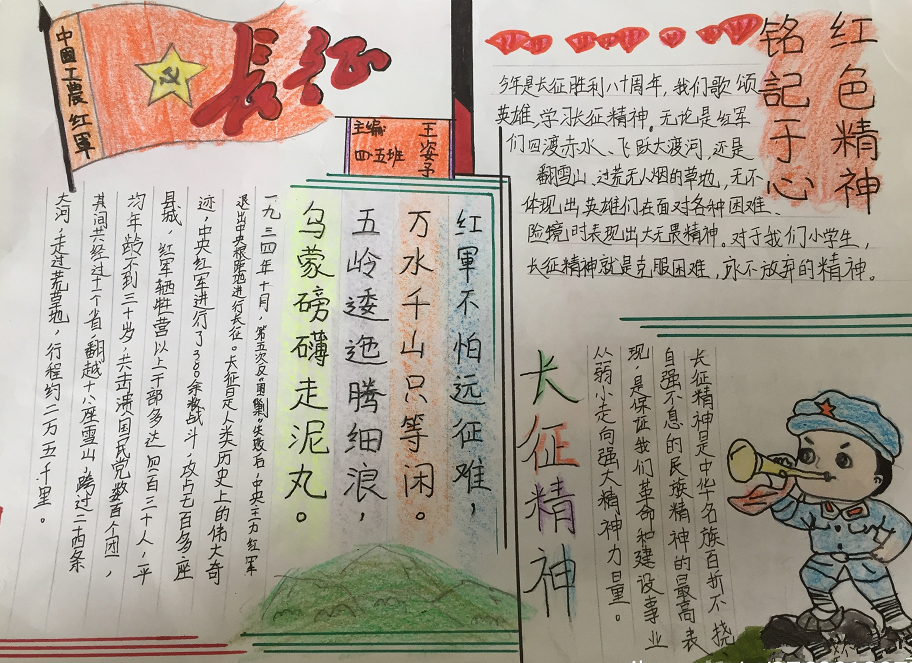 中國工農紅軍
长征
主编
四·五班
王姿予
红軍不怕远征难，
万水千山只等闲。
五岭逶迤腾细浪，
乌蒙磅礴走泥丸。
一九三四年十月，第五次反“围剿”失败后，中央主力红軍
退出中央根据地进行长征。长征是人类历史上的伟大奇
迹，中央红军进行了380余次战斗，攻占七百多座
县城，红军牺牲营以上干部多达四百三十人，平
均年龄不到三十岁，共击溃国民党数百个团，
其间共经过十一个省，翻越十八座雪山，跨过二四条
大河，走过荒草地，行程约二万五千里。
红色精神
铭記于心
今年是长征胜利八十周年，我们歌颂
英雄，学习长征精神。无论是红军
们四渡赤水、飞跃大渡河，还是
翻雪山、过荒无人烟的草地，无不
体现出英雄们在面对各种困难、
险镜时表现出大无畏精神。对于我们小学生，
长征精神就是克服困难，永不放弃的精神。
长征精神
长征精神是中华名族百折不挠
自强不息的民族精神的最高表
现，是保证我们革命和建设事业
从弱小走向强大精神力量。